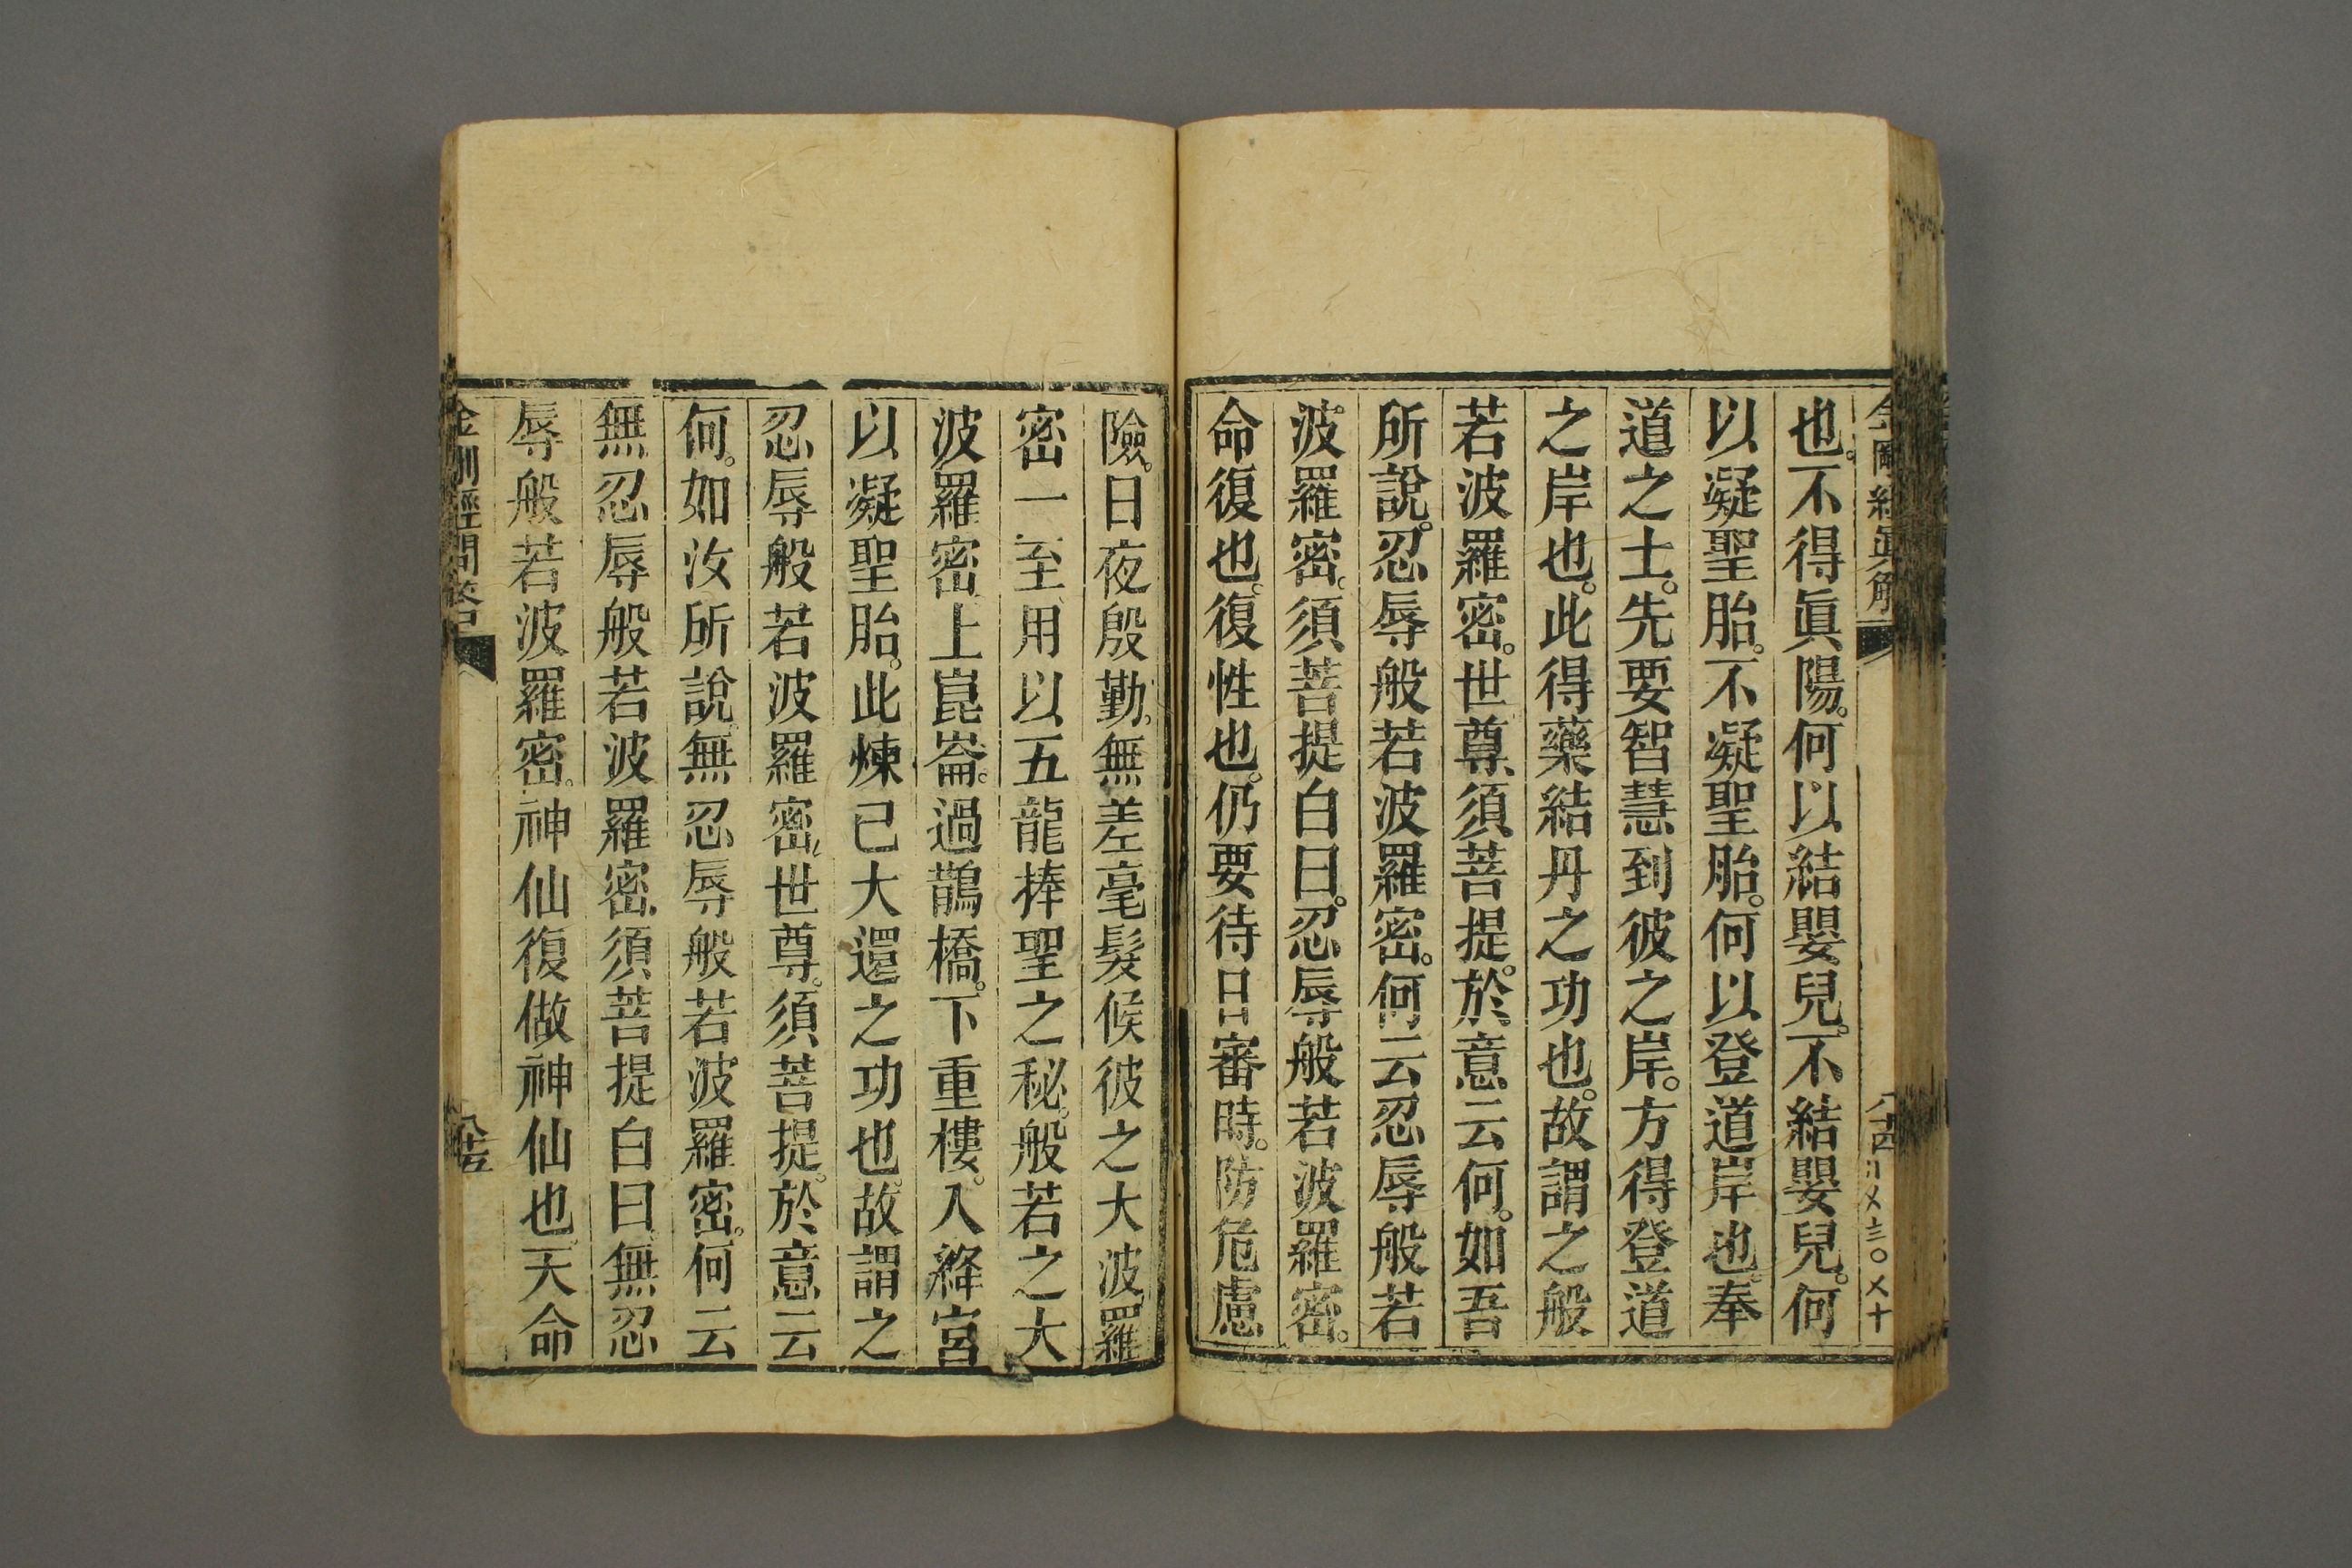 金剛經眞解 八十四
也。不得眞陽。何以結嬰兒。不結嬰兒。何
以凝聖胎。不凝聖胎。何以登道岸也。奉
道之士。先要智慧到彼之岸。方得登道
之岸也。此得藥結丹之功也。故謂之般
若波羅密。世尊、須菩提。於意云何。如吾
所說。忍辱般若波羅密。何云忍辱般若
波羅密。須菩提白曰。忍辱般若波羅密。
命復也。復性也。仍要待日審時。防危慮
險。日夜殷勤。無差毫髮候彼之大波羅
密一至、用以五龍捧聖之秘。般若之大
波羅密、上崑崙。過鵲橋。下重樓。入絳宮
以凝聖胎。此煉己大還之功也。故謂之
忍辱般若波羅密、世尊。須菩提。於意云
何。如汝所說、無忍辱般若波羅密。何云
無忍辱般若波羅密、須菩提白曰、無忍
辱般若波羅密。神仙復做神仙也。天命
金剛經問答 八十五